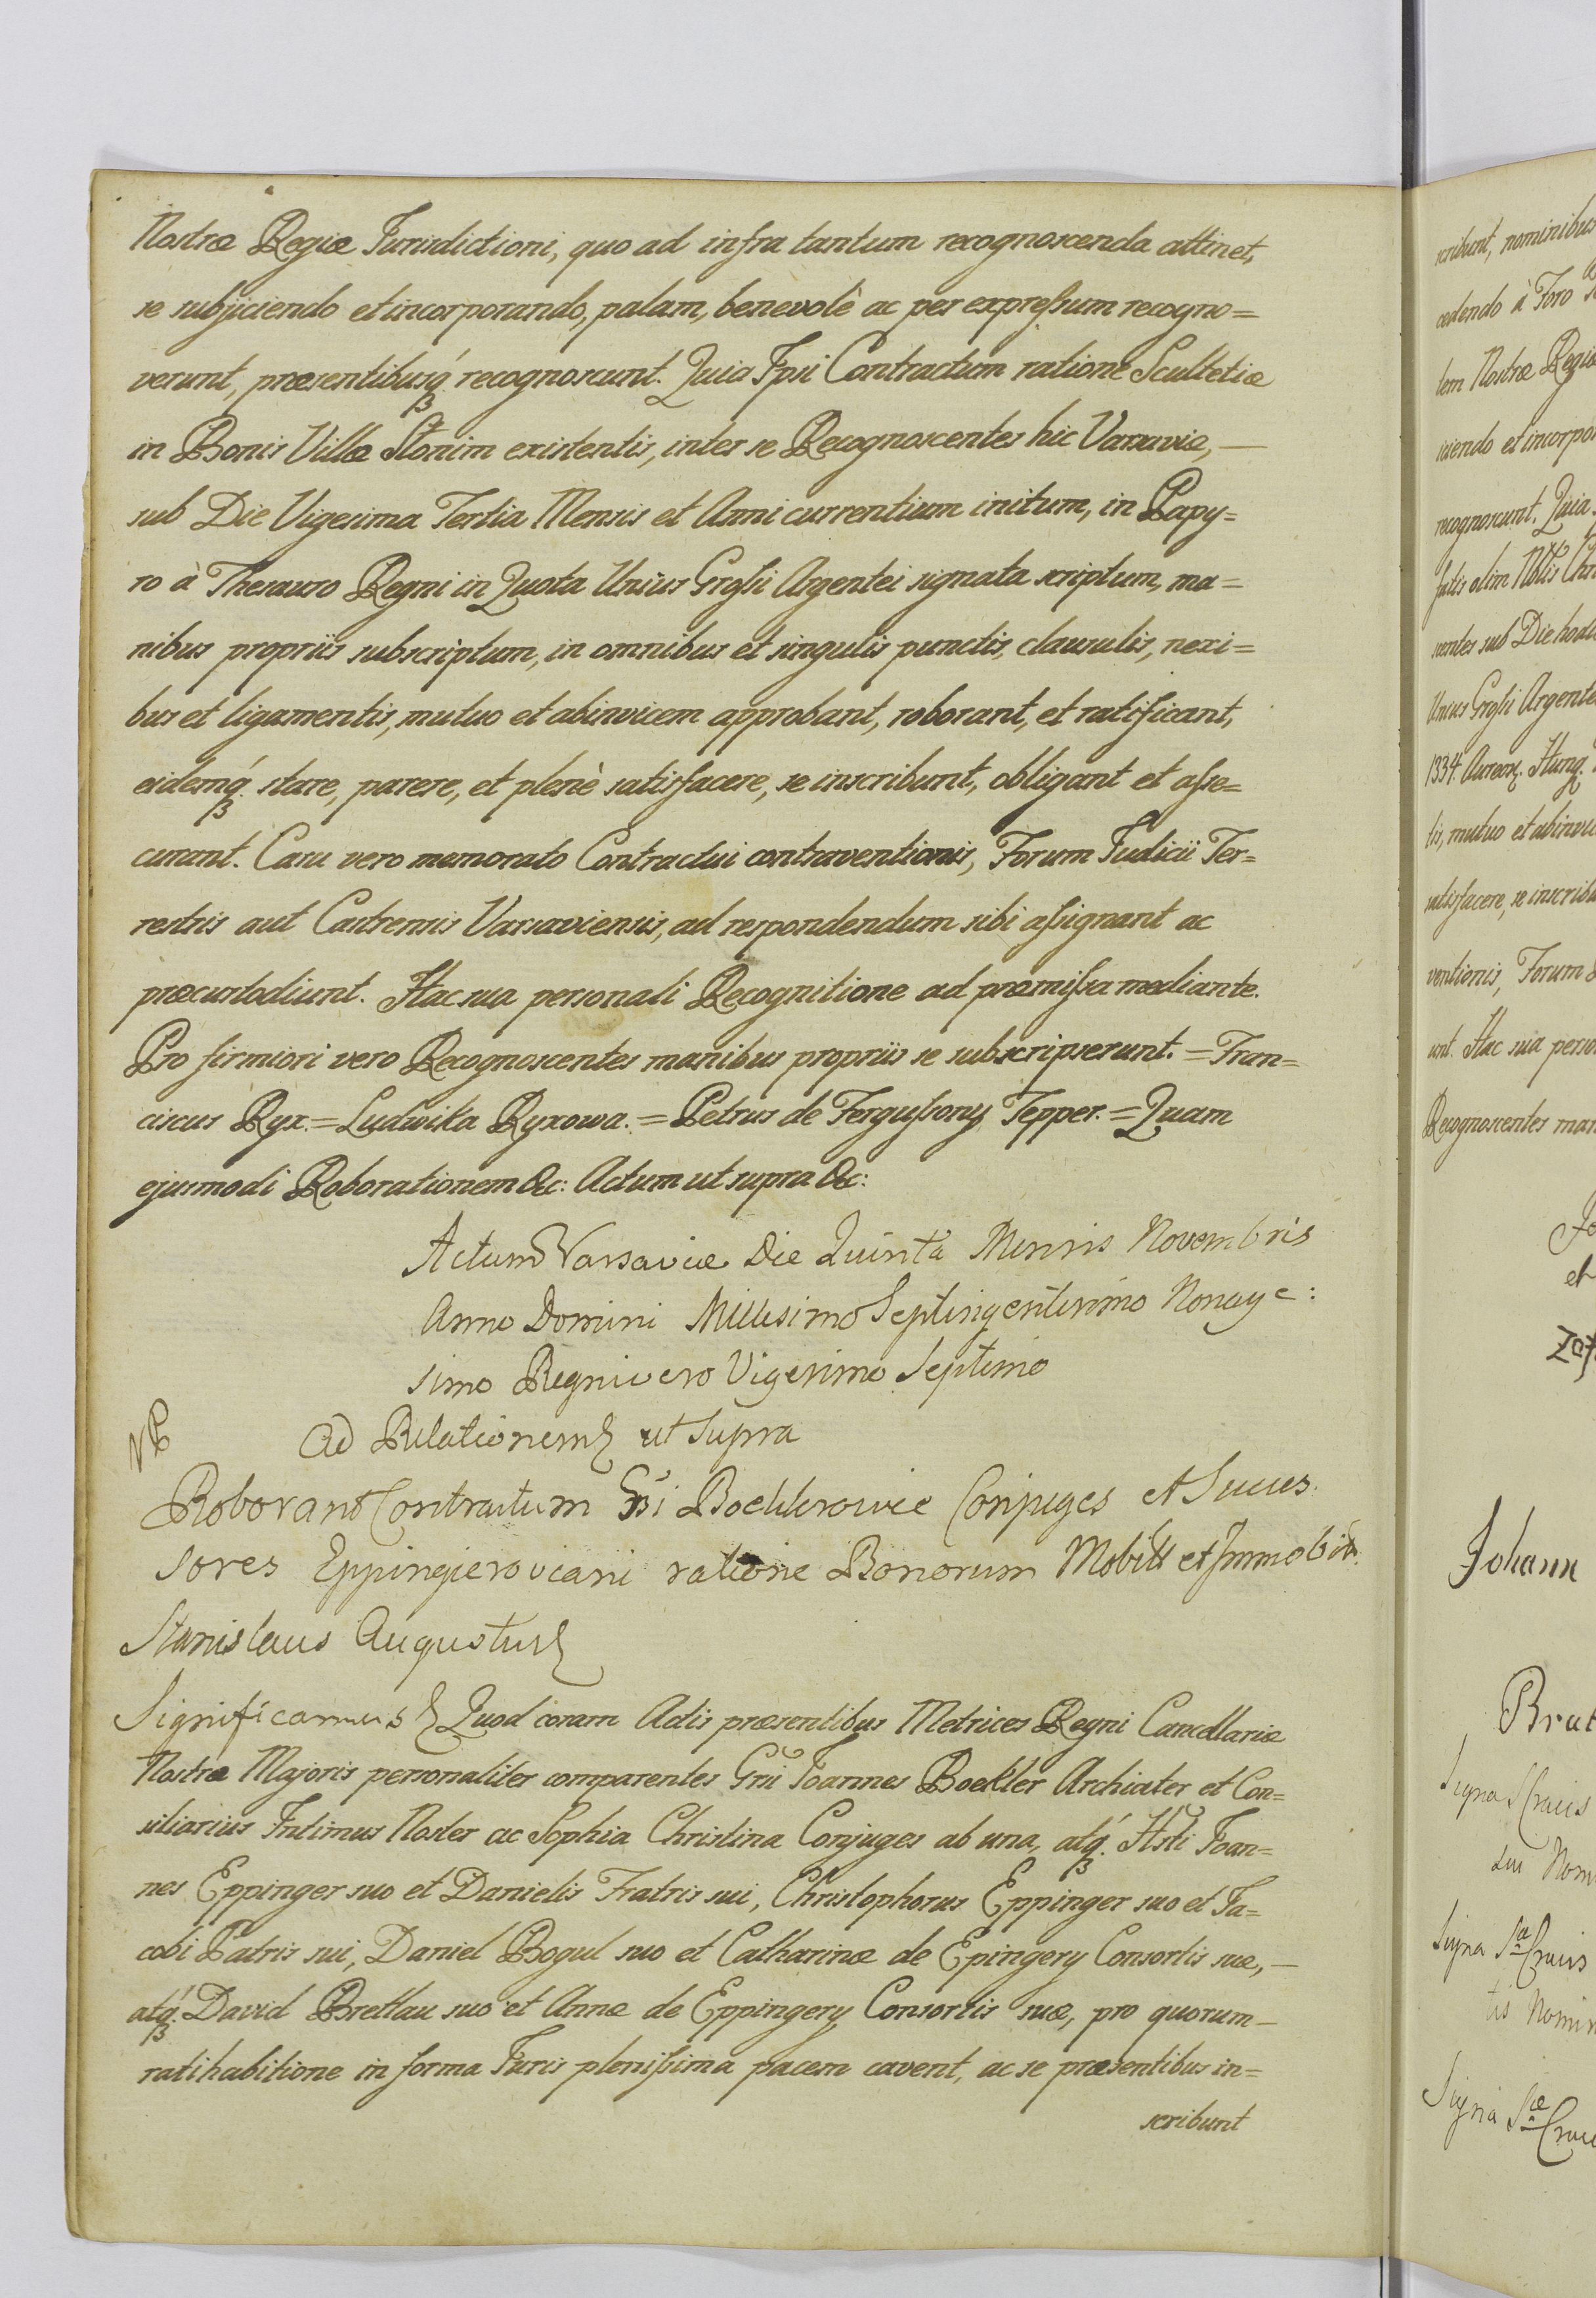 Nostræ Regiæ Jurisdictioni, quo ad infra tantum recognoscenda attinet,
se subjiciendo et incorporando, palam, benevolè ac per expreſsum recogno=
verunt, præsentibusq́ꝫ recognoscunt. Quia Ipsi Contractum ratione Scultetiæ
in Bonis Villæ Słonim existentis, inter se Recognoscentes hic Varsaviæ, —
sub Die Vigesima Tertia Mensis et Anni currentium initum, in Papy=
ro à Thesauro Regni in Quota Unius Groſsi Argentei signata scriptum, ma=
nibus propriis subscriptum, in omnibus et singulis punctis, clausulis, nexi=
bus et ligamentis, mutuo et abinvicem approbant, roborant, et ratificant,
eidemq́ꝫ stare, parere, et plenè satisfacere, se inscribunt, obligant et aſse=
curant. Casu vero memorato Contractui contraventionis, Forum Judicii Ter=
restris aut Castrensis Varsaviensis, ad respondendum sibi aſsignant ac
præcustodiunt. Hac sua personali Recognitione ad præmiſsa mediante.
Pro firmiori vero Recognoscentes manibus propriis se subscripserunt. = Fran=
ciscus Ryx. = Ludwika Ryxowa. = Petrus de Ferguſsony Tepper. = Quam
ejusmodi Roborationem &c: Actum ut supra &c:
Actum Varsaviæ Die Quinta Mensis Novembris
Anno Domini Millesimo Septingentesimo Nonage:
simo Regni vero Vigesimo Septimo
Ad Relationem ut Supra
Roborant Contractum Gsi Boeklerowie Conjuges et Succes:
sores Eppingierowiani ratione Bonorum Mobili et Immobili
Stanislaus Augustus
Significamus Quod coram Actis præsentibus Metrices Regni Cancellariæ
Nostræ Majoris personaliter comparentes Gñi Joannes Boekler Archiater et Con=
siliarius Intimus Noster ac Sophia Christina Conjuges ab una, atq́ꝫ Hsti Joan=
nes Eppinger suo et Danielis Fratris sui, Christophorus Eppinger suo et Ja=
cobi Patris sui, Daniel Bogul suo et Catharinæ de Epingery Consortis suæ, —
atq́ꝫ David Brettlau suo et Annæ de Eppingery Consortis suæ, pro quorum —
ratihabitione in forma Juris pleniſsima pacem cavent, ac se præsentibus in=
scribunt
scribunt, nominibus
cedendo à Foro
tem Nostræ Regiæ
iciendo et incorpo
recognoscunt. Quia
fatis olim Nbtis Chri
scentes sub Die hodi
Unius Groſsi Argente
1334. Aureor. Hung.
tis, mutuo et abinvi
satisfacere, se inscribu
ventionis, Forum
unt. Hac sua perso
Recognoscentes man
et
Johann
Brat
Signa S Crucis
sui Nom
Signa Stæ Crucis
tis Nomin
Signa Stæ Cruci